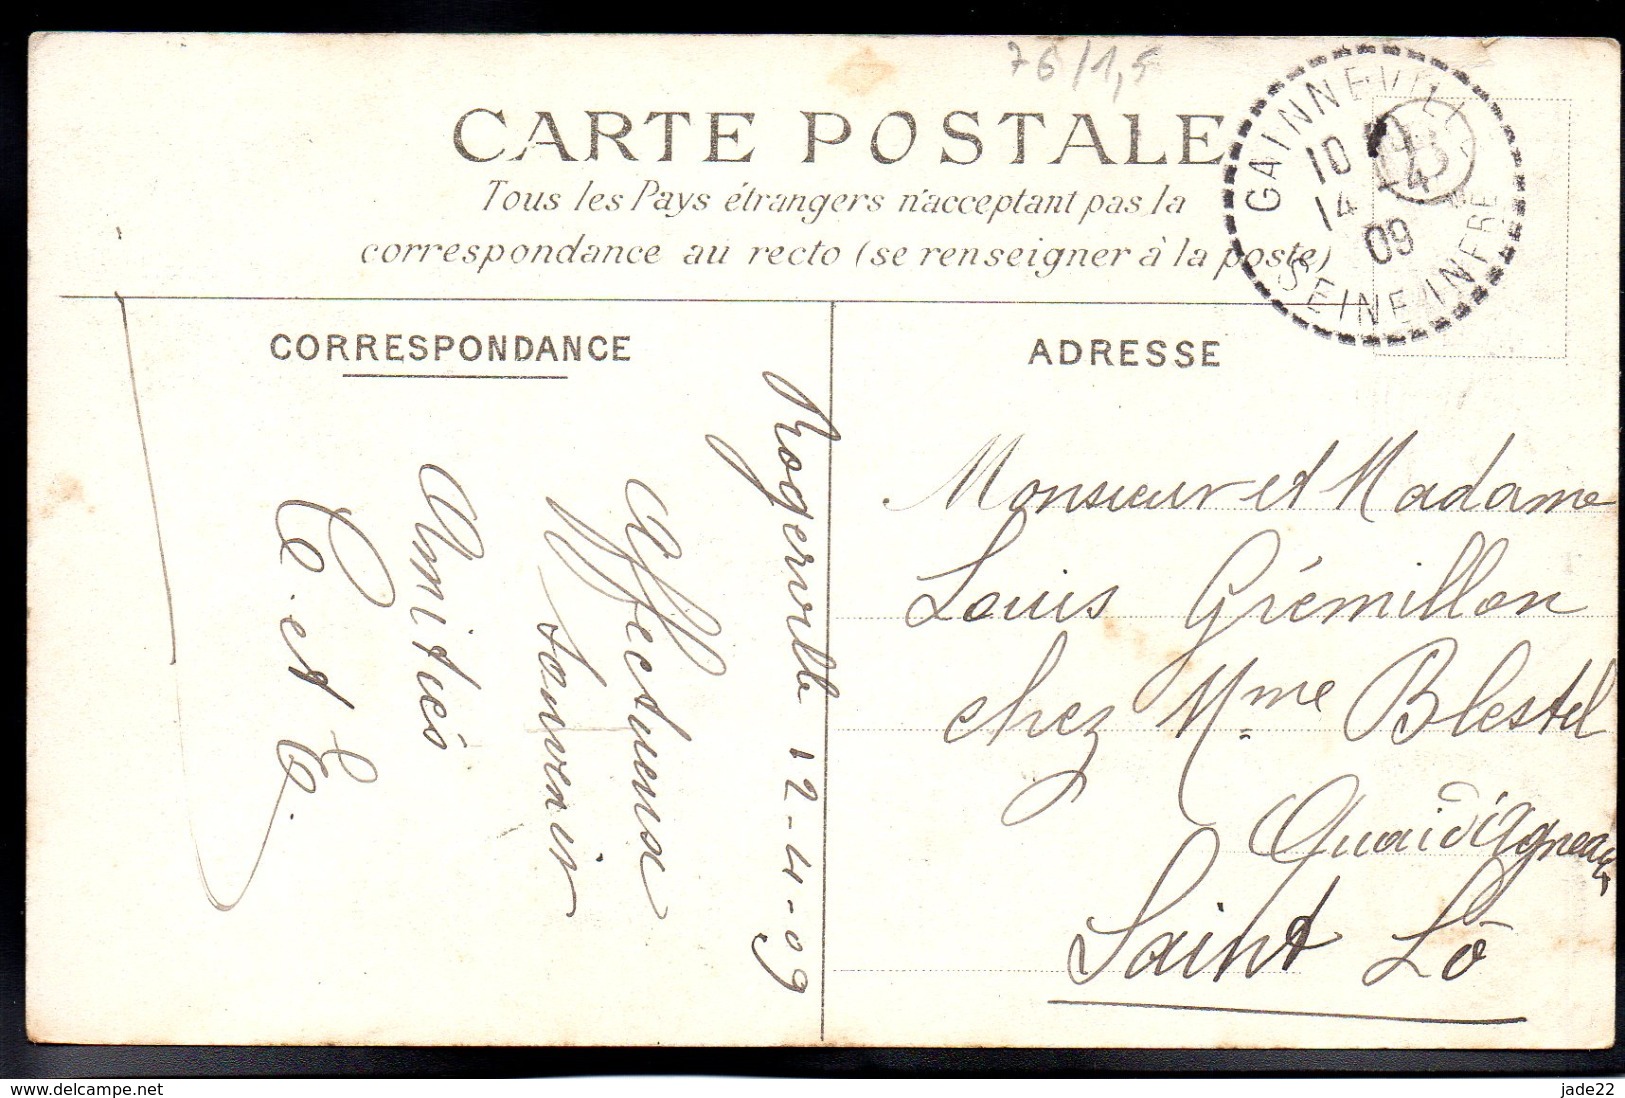 76/1,5
CARTE POSTALE
Tous les Pays étrangers n'acceptent pas la
correspondance au recto (se renseigner à la poste)
GAINNEVILLE
10
14 -4
09
SEINE INFRE
CORRESPONDANCE
Rogerville 12-4-09
Affectueux
souvenir
Amitiés
C. et E.
ADRESSE
Monsieur et Madame
Louis Grémillon
chez Mme Blestel
Quai d'Agneaux
Saint Lô
www.delcampe.net
jade22